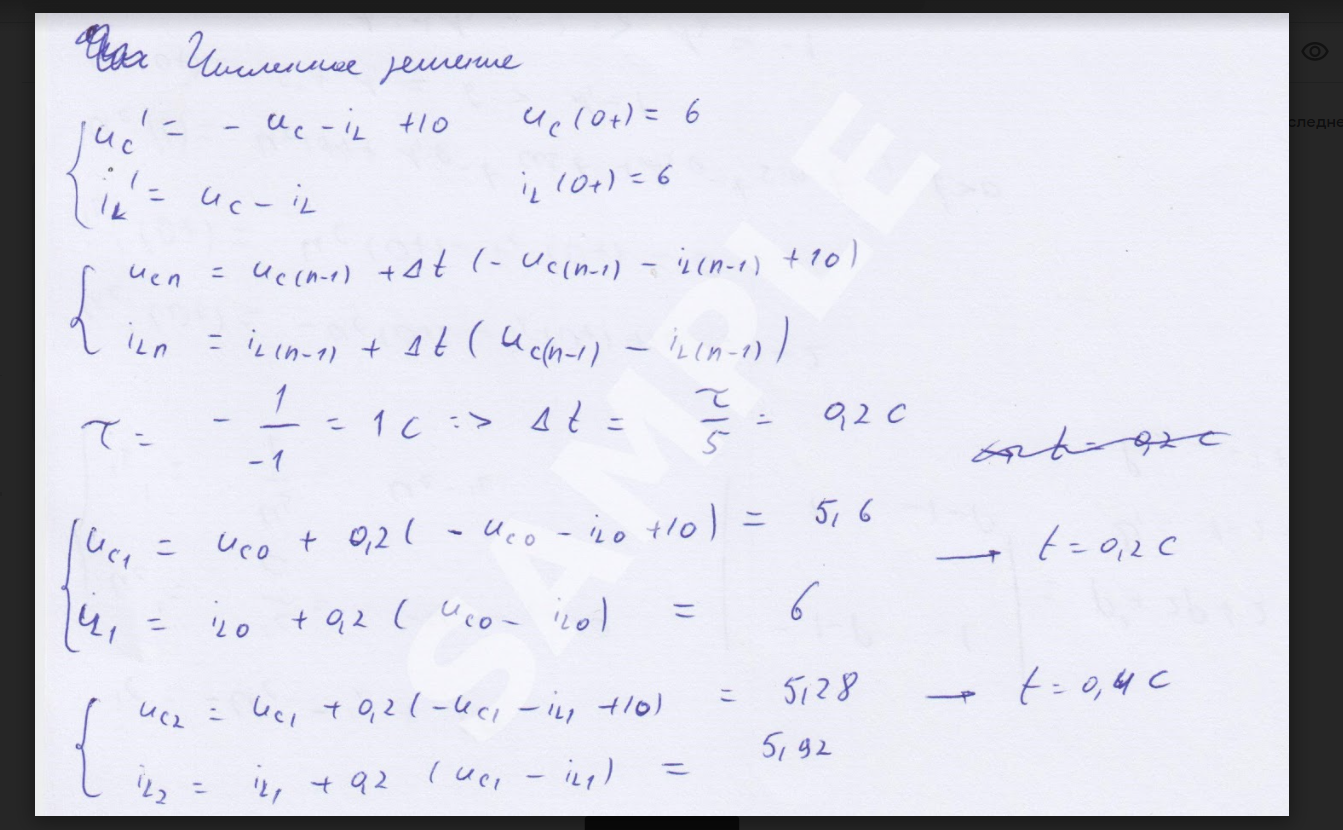 Численное решение
uc' = - uc - iL + 10 uc(0+) = 6
iL' = uc - iL iL(0+) = 6
ucn = uc(n-1) + Δt (- uc(n-1) - iL(n-1) + 10)
iLn = iL(n-1) + Δt (uc(n-1) - iL(n-1))
τ = - 1/-1 = 1 c => Δt = τ/5 = 0,2 c
t = 0,2 c
uc1 = uc0 + 0,2 (- uc0 - iL0 + 10) = 5,6 → t = 0,2 c
iL1 = iL0 + 0,2 (uc0 - iL0) = 6
uc2 = uc1 + 0,2 (-uc1 - iL1 + 10) = 5,28 → t = 0,4 c
iL2 = iL1 + 0,2 (uc1 - iL1) = 5,92
SAMPLE
следне